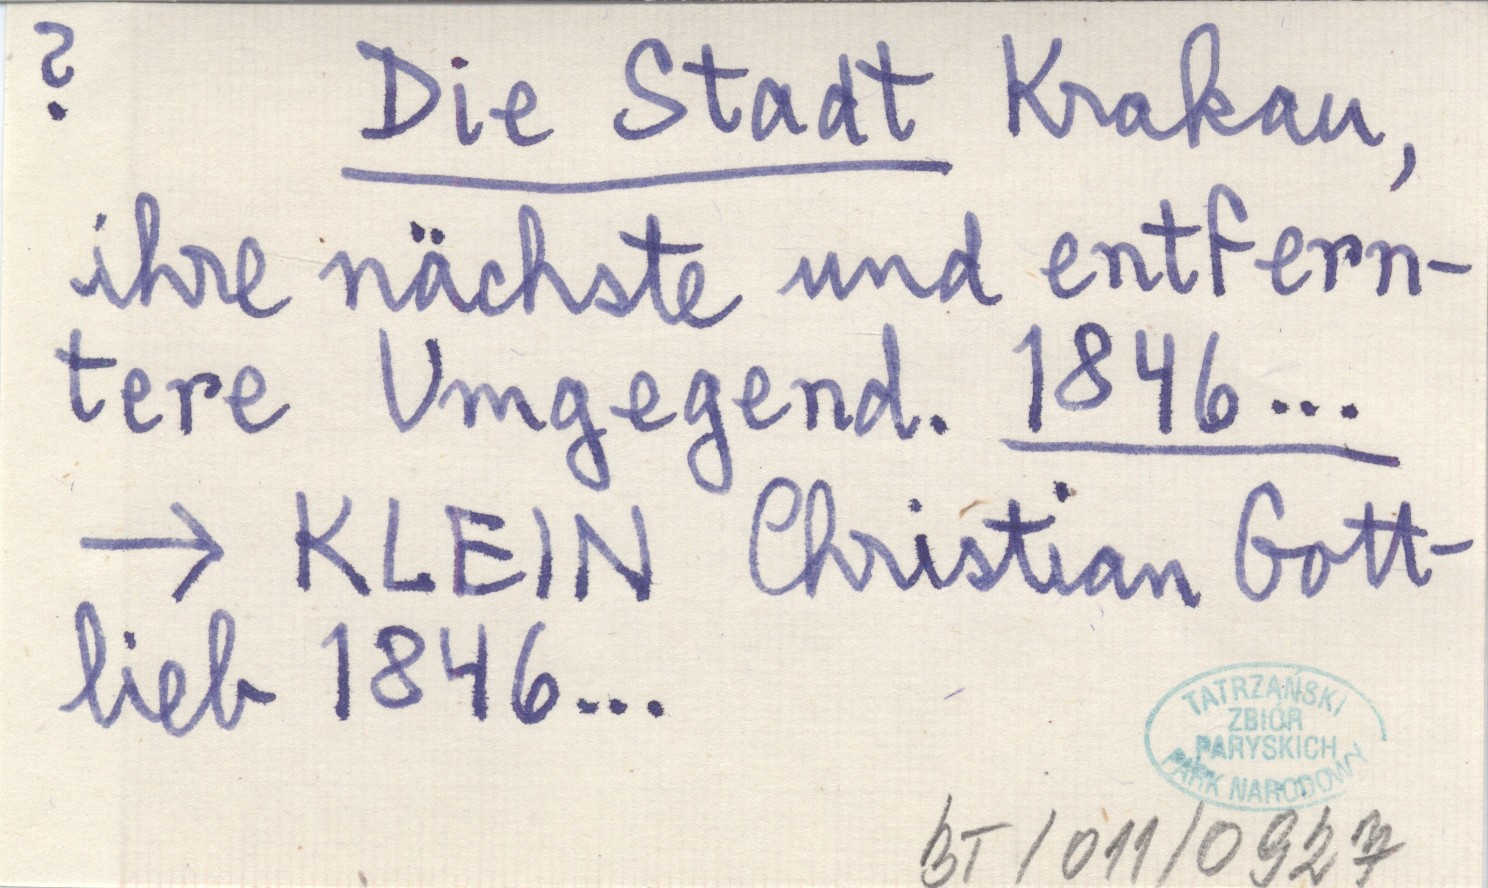 ?
Die Stadt Krakau,
ihre nächste und entfern-
tere Umgegend. 1846...
→ KLEIN Christian Gott-
lieb 1846...
TATRZAŃSKI
ZBIÓR
PARYSKICH
PARK NARODOWY
BT/011/0927